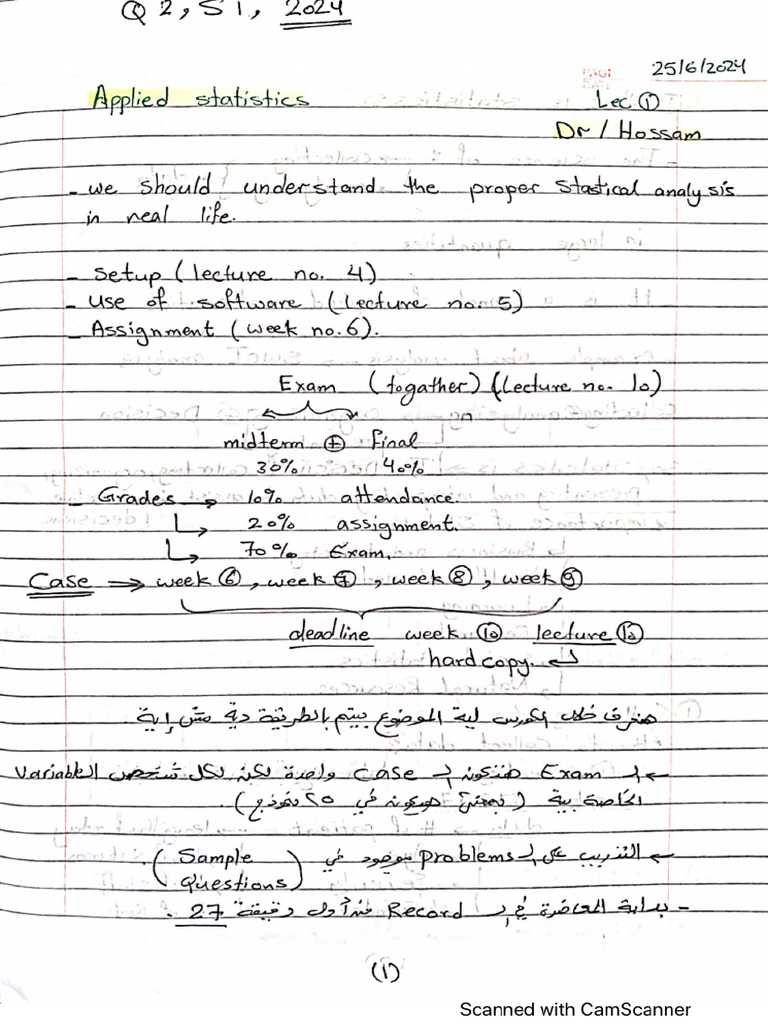 Q 2, S 1, 2024
25/6/2024
Applied statistics Lec ①
Dr / Hossam
- we should understand the proper stastical analysis
in real life.
- setup (lecture no. 4)
- use of software (lecture no. 5)
- Assignment (week no. 6).
Exam (togather) (lecture no. 10)
midterm ⊕ final
30% 40%
- Grades → 10% attendance.
↳ 20% assignment.
↳ 70% Exam.
Case → week ⑥, week ⑦, week ⑧, week ⑨
deadline week ⑩ lecture ⑩
hard copy. ↲
هنعرف خلال الكورس لية الموضوع بيتم بالطريقة دية مش إية.
← الـ Exam هتكون الـ case واحدة لكن لكل شخص الـ Variable
الخاصة بية (بمعنى هيكون في ٢٥ نموذج).
← التدريب على الـ problems موجود في (Sample
Questions).
- بداية المحاضرة في الـ Record من أول دقيقة 27.
(1)
Scanned with CamScanner